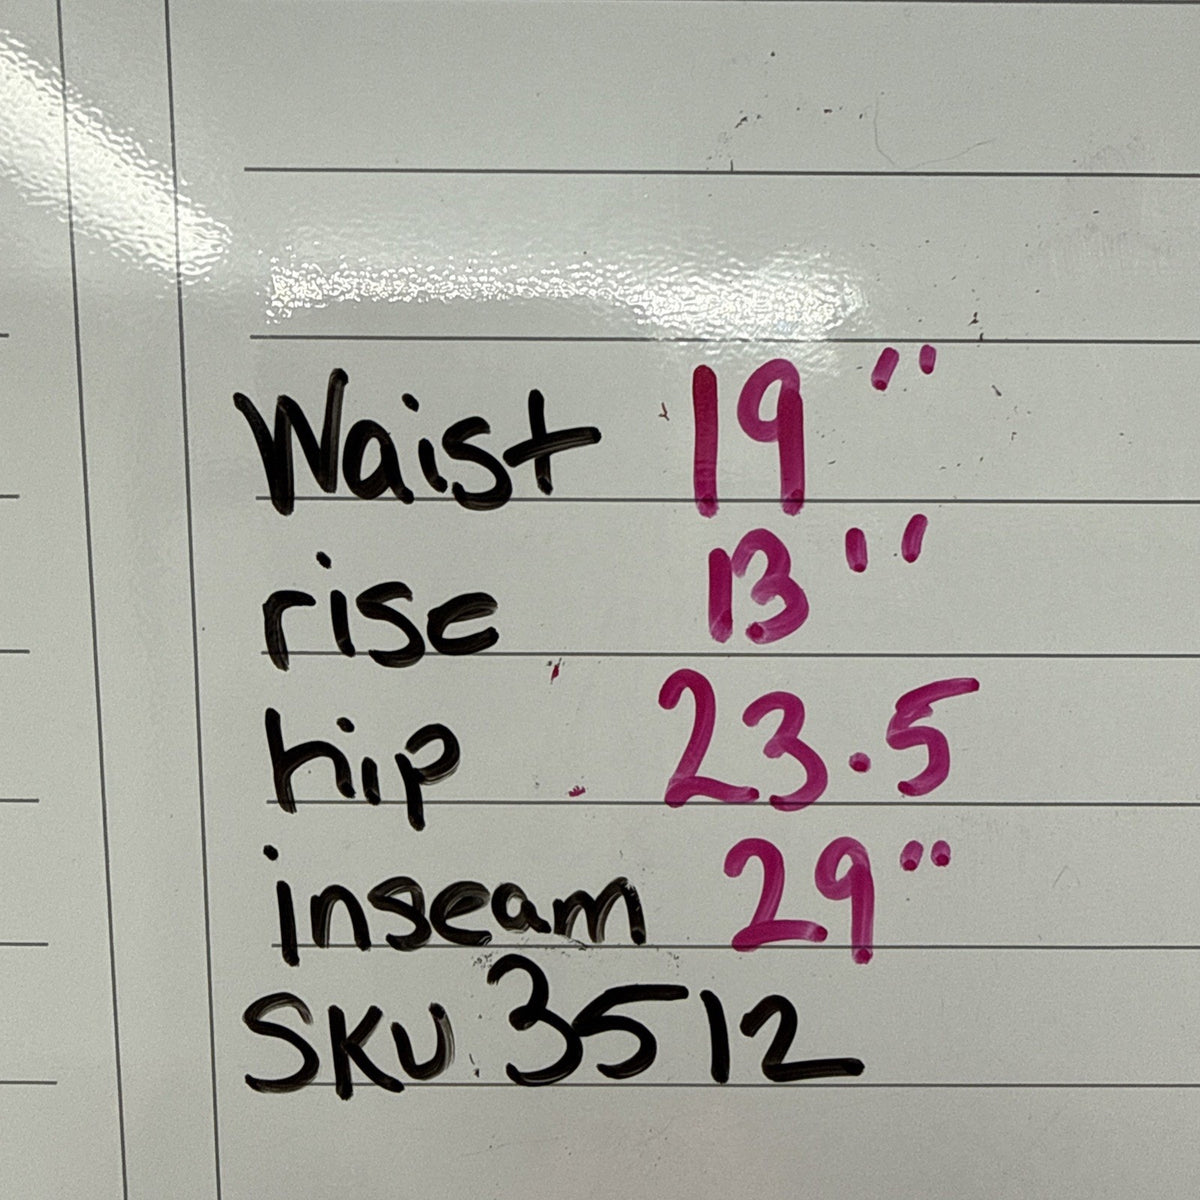 Waist 19"
rise 13"
hip 23.5
inseam 29"
SKU 3512